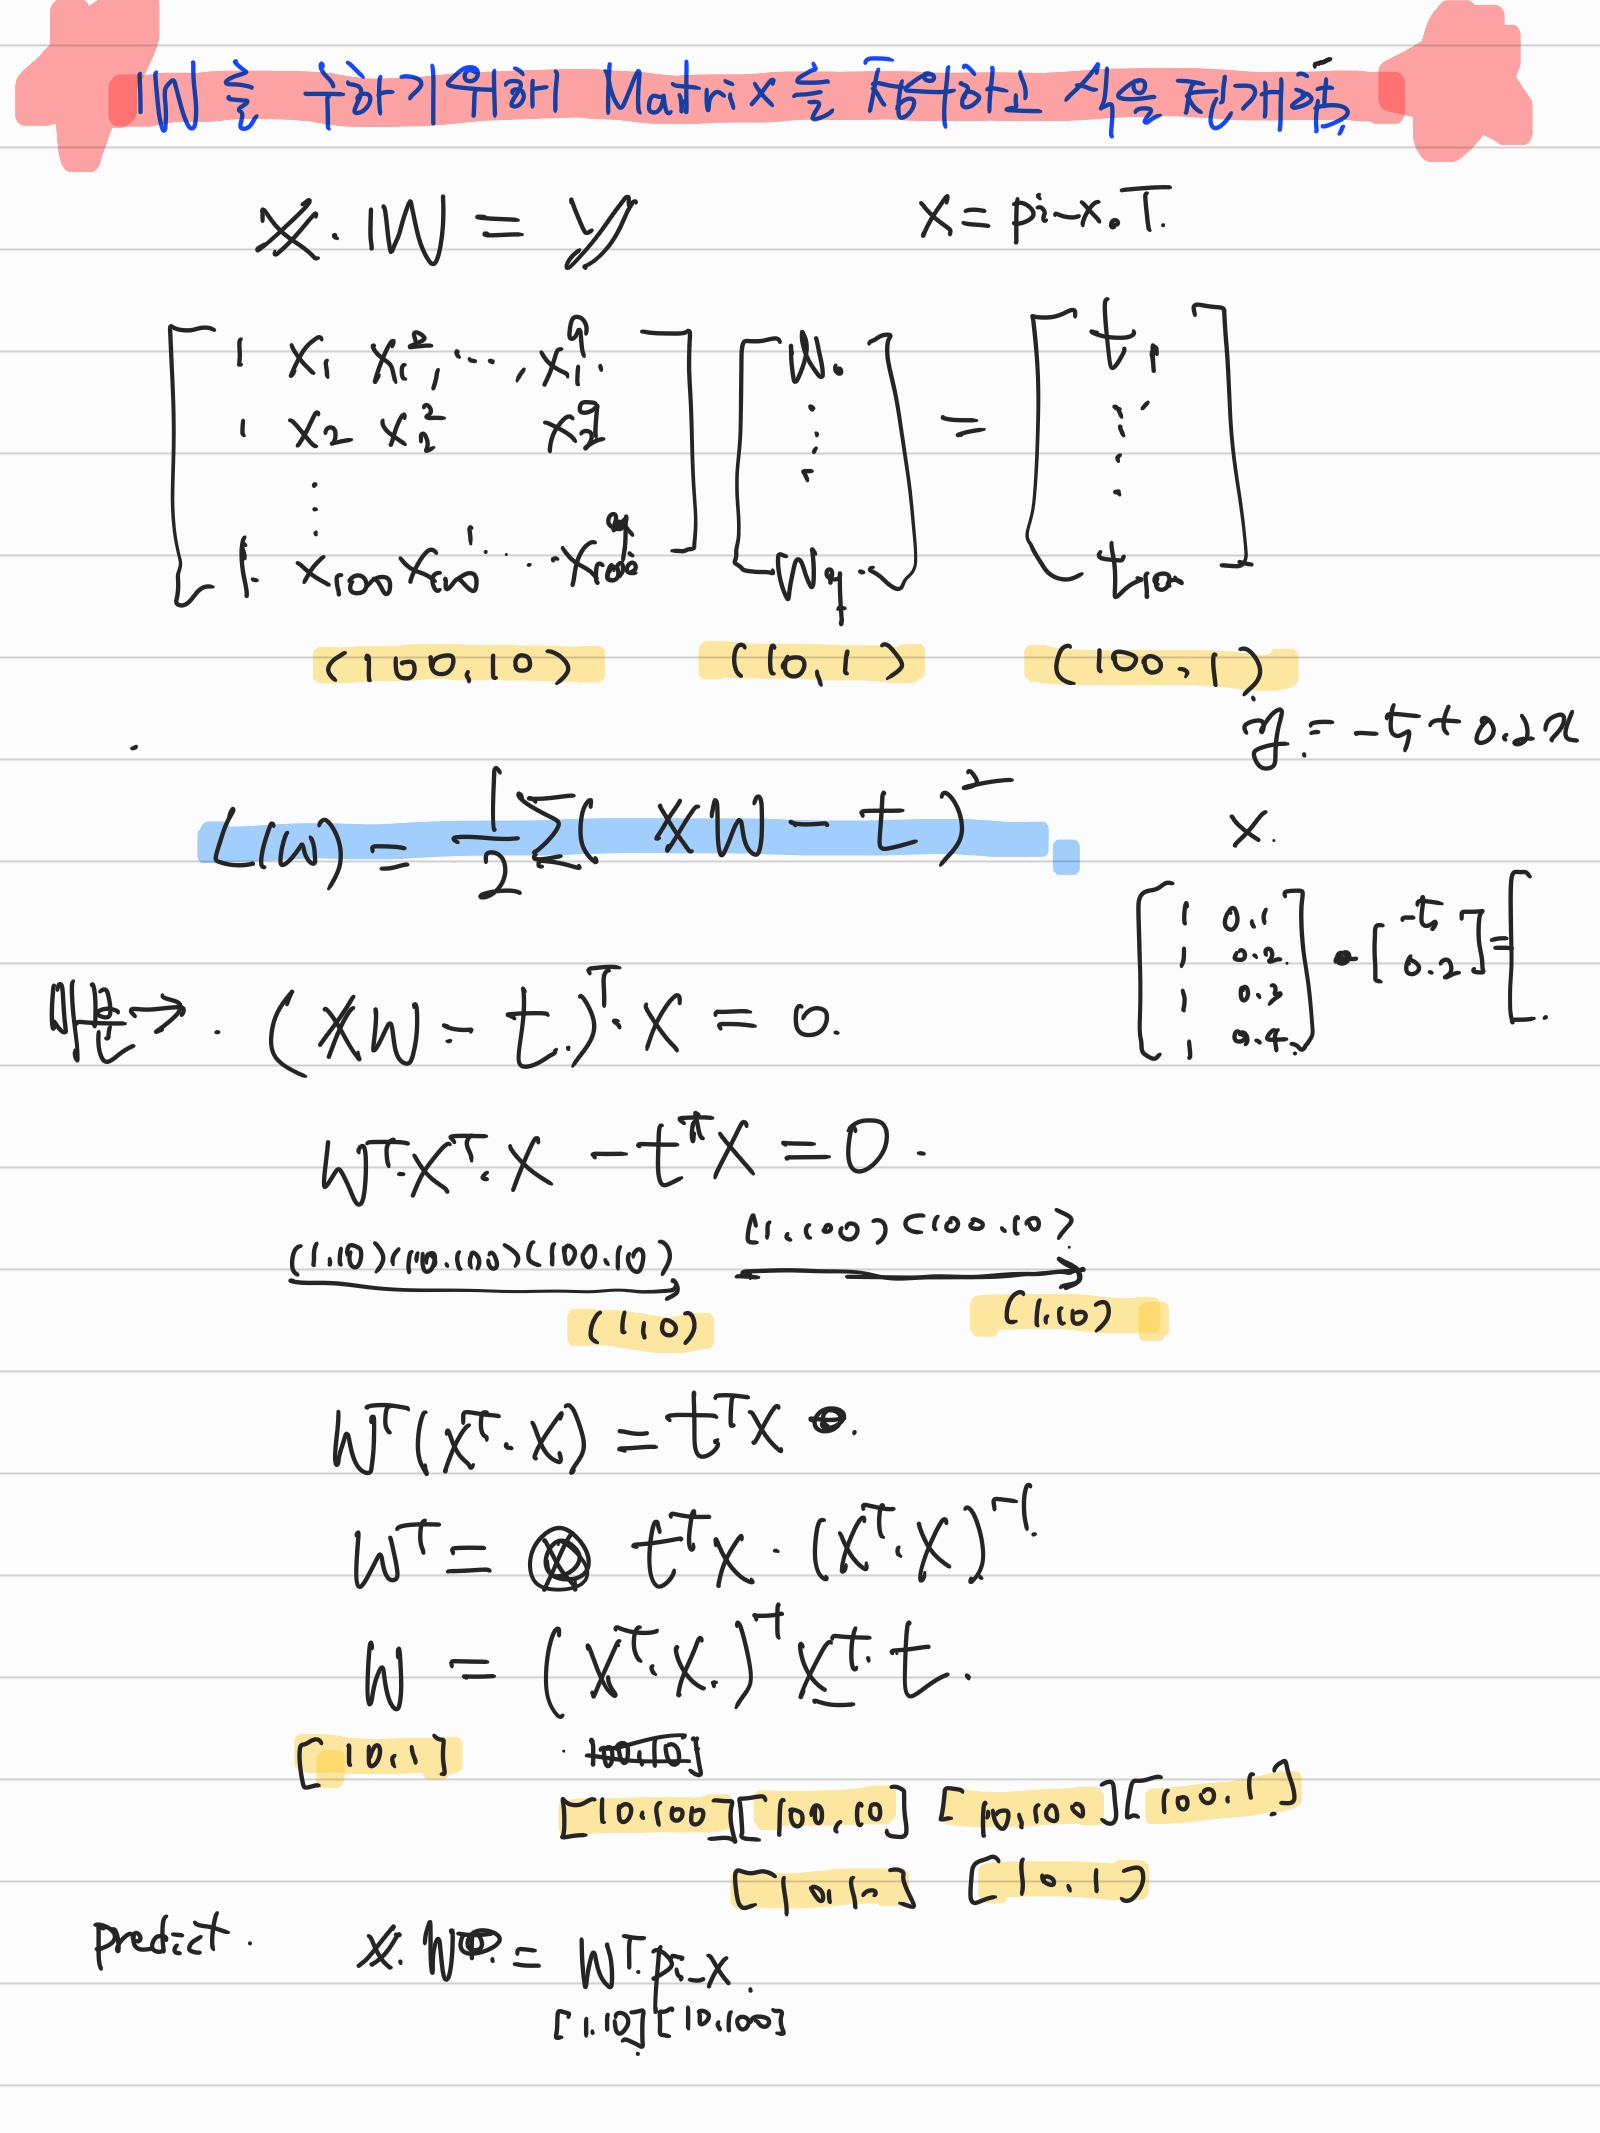 W를 구하기위해 Matrix를 정의하고 식을 전개해봄
X. W = y
X = pi-x.T.
1 x₁ x₁², ..., x₁⁹
1 x₂ x₂² x₂⁹
⋮
1 x₁₀₀ x₁₀₀ ... x₁₀₀⁹
W₀
⋮
W₉
=
t₁
⋮
t₁₀₀
(100,10) (10,1) (100,1)
y = -5 + 0.2x
L(W) = 1/2 Σ( XW - t )²
X.
[1 0.1
1 0.2
1 0.3
1 0.4] • [-5
0.2] = [
미분→. (XW - t.)ᵀ. X = 0.
Wᵀ.Xᵀ. X - tᵀX = 0.
(1.10)(10.100)(100.10) (1.100)(100.10)
(1,10) (1.10)
Wᵀ(Xᵀ. X) = tᵀX
Wᵀ = tᵀX. (Xᵀ. X)⁻¹
W = (Xᵀ. X.)⁻¹ Xᵀ. t.
[10.1] 100.10]
[10.100][100.10] [10.100][100.1]
[10,10] [10.1]
predict. X. W = Wᵀ. pi-x.
[1.10][10.100]